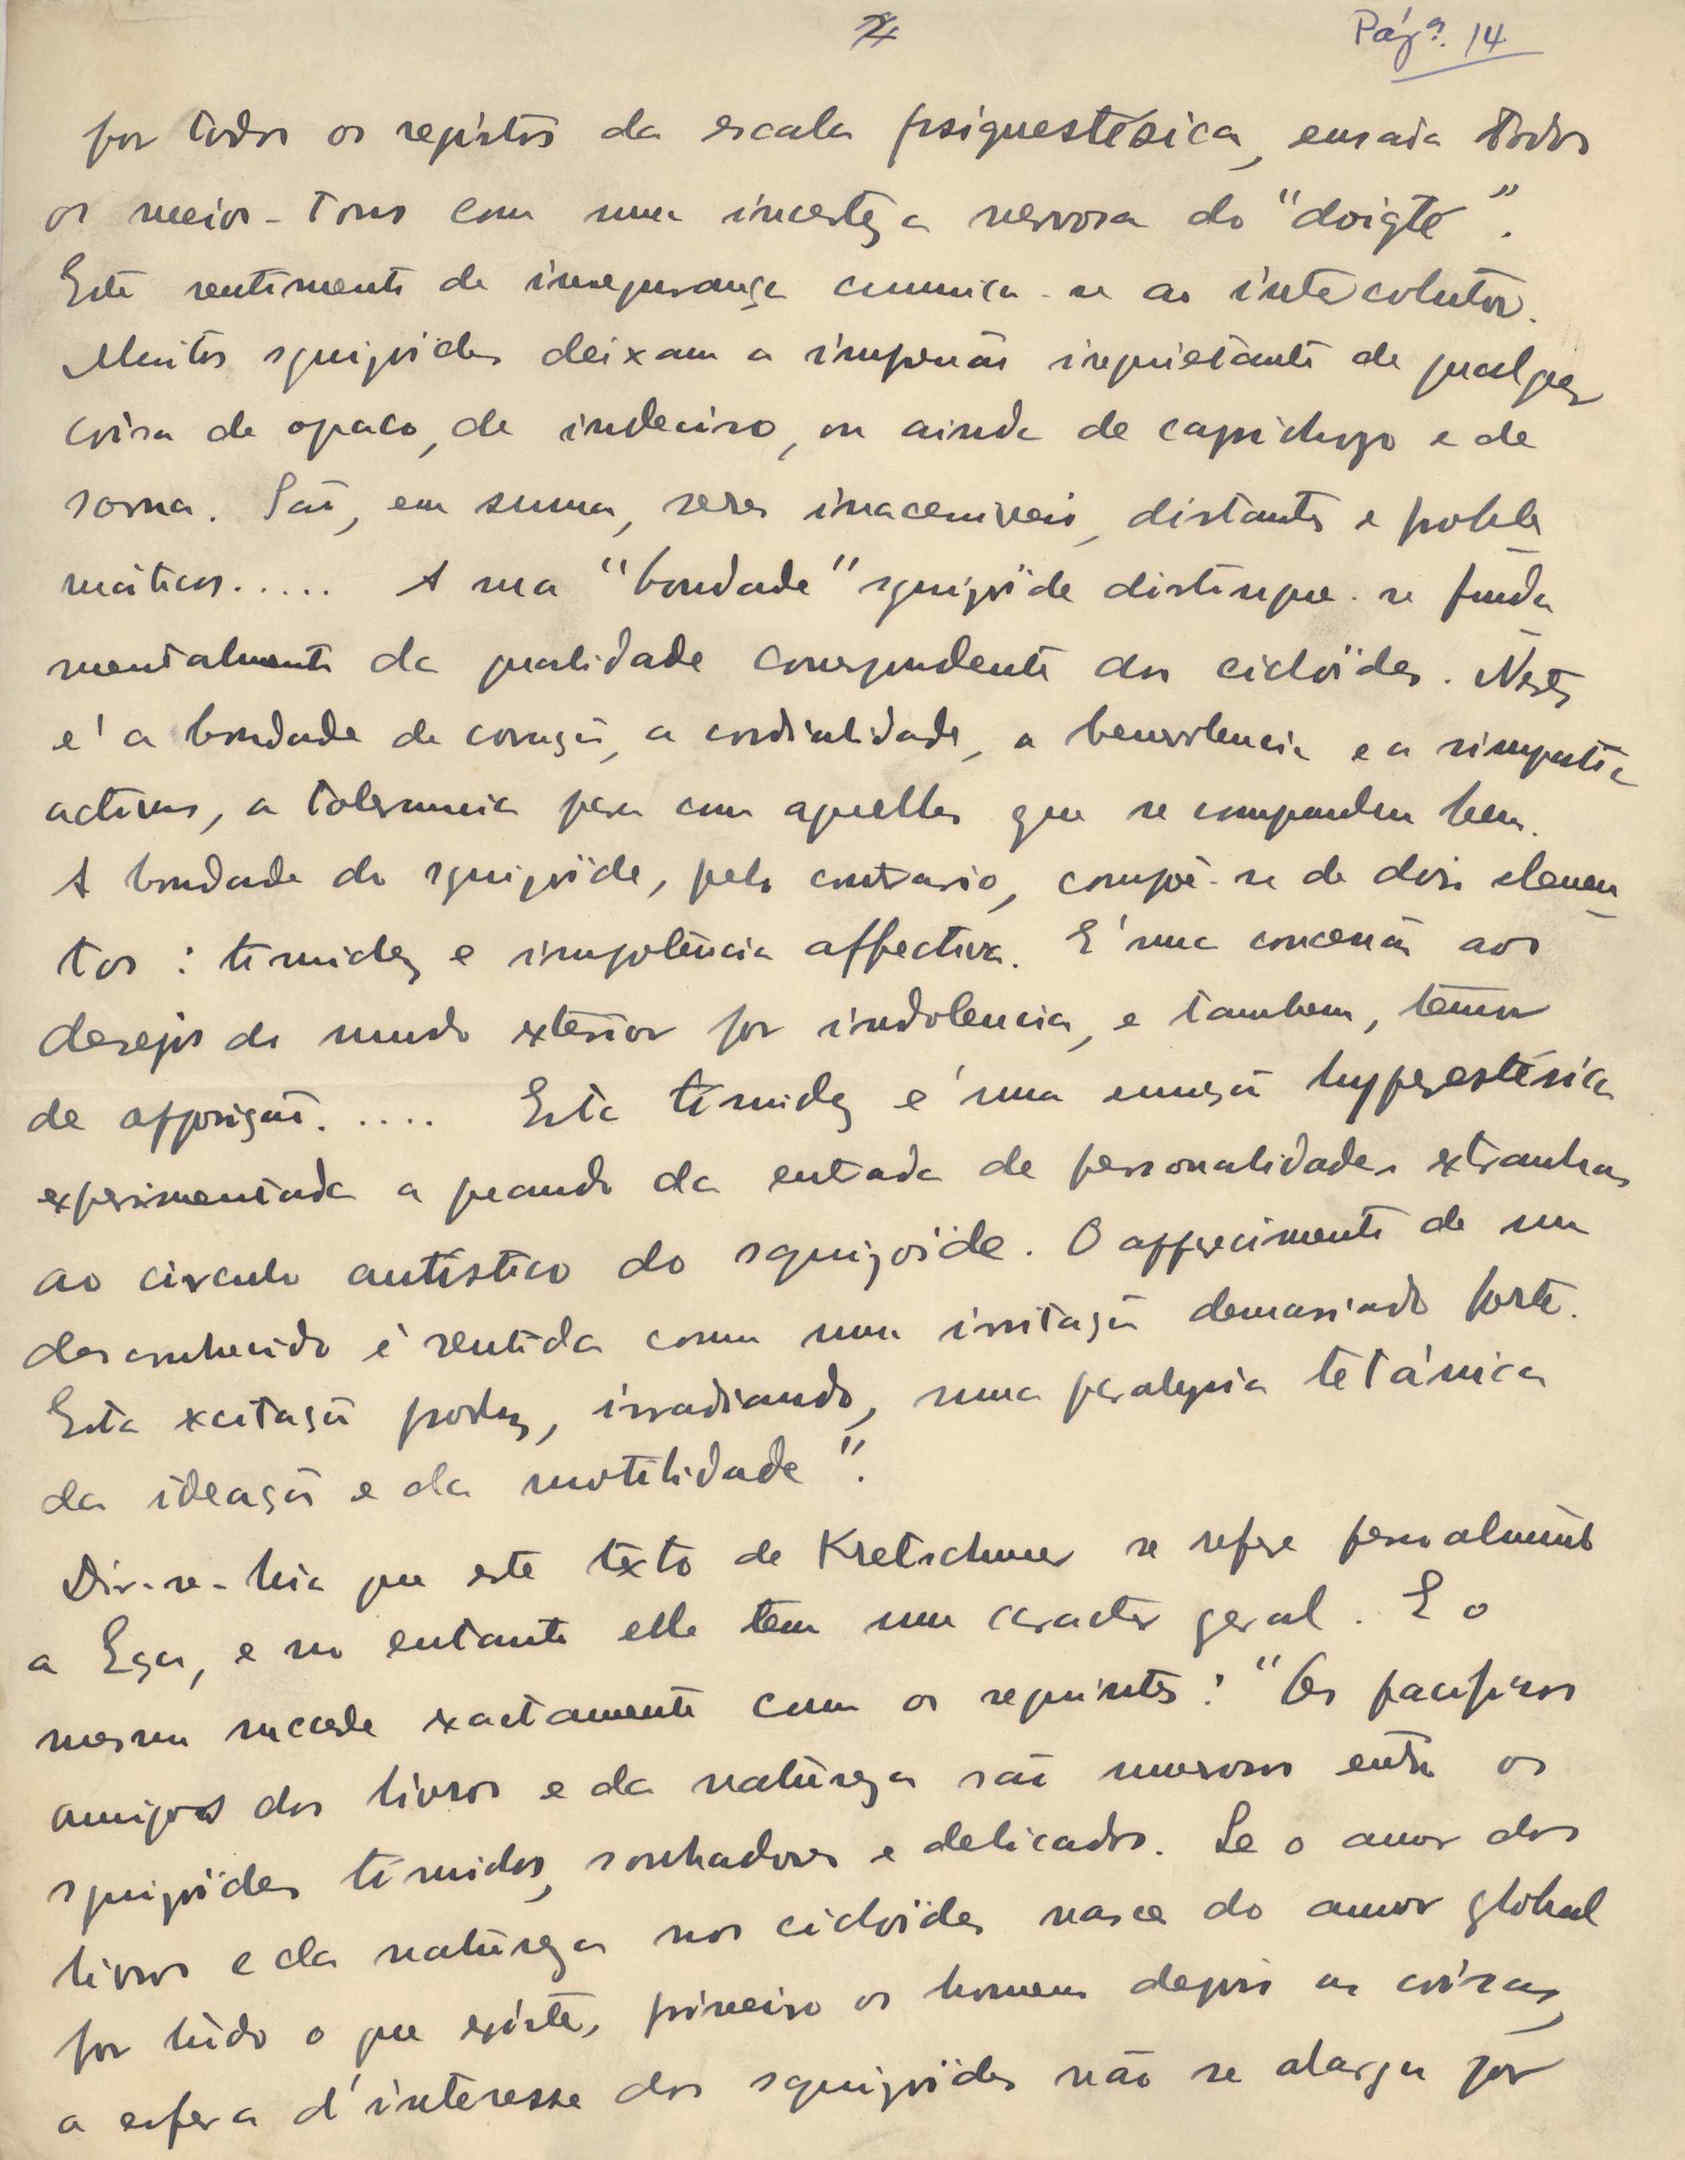 Pág.ª 14
por todos os registos da escala psiquestésica, ensaia todos
os meios-tons com uma incerteza nervosa do "doigté".
Este sentimento de insegurança comunica-se ao interlocutor.
Muitos squizoïdes deixam a impressão inquietante de qualquer
coisa de opaco, de indeciso, ou ainda de caprichozo e de
sorna. São, em summa, seres inaccessiveis, distantes e proble
máticos..... A sua "bondade" squizoïde distingue-se funda
mentalmente da qualidade correspondente dos cicloïdes. Nestes
é a bondade de coração, a cordialidade, a benevolencia e a simpatia
activas, a tolerancia para com aquelles que se comprendem bem.
A bondade do squizoïde, pelo contrario, compõe-se de dois elemen
tos: timidez e impotência affectiva. É uma concessão aos
desejos do mundo exterior por indolencia, e tambem, temor
de opposição..... Esta timidez é uma emoção hyperestésica
experimentada a quando da entrada de personalidades extranhas
ao circulo autístico do squizoïde. O apparecimento de um
desconhecido é sentida como uma irritação demasiado forte.
Esta excitação produz, irradiando, uma paralysia tetánica
da ideação e da motilidade".
Dir-se-hia que este texto de Kretschmer se refere pessoalmente
a Eça, e no entanto elle tem um caracter geral. E o
mesmo succede exactamente com os seguintes: "Os pacificos
amigos dos livros e da natureza são numerosos entre os
squizoïdes timidos, sonhadores e delicados. Se o amor dos
livros e da natureza nos cicloïdes nasce do amor global
por tudo o que existe, primeiro os homens depois as coizas,
a esfera d'interesse dos squizoïdes não se alarga por